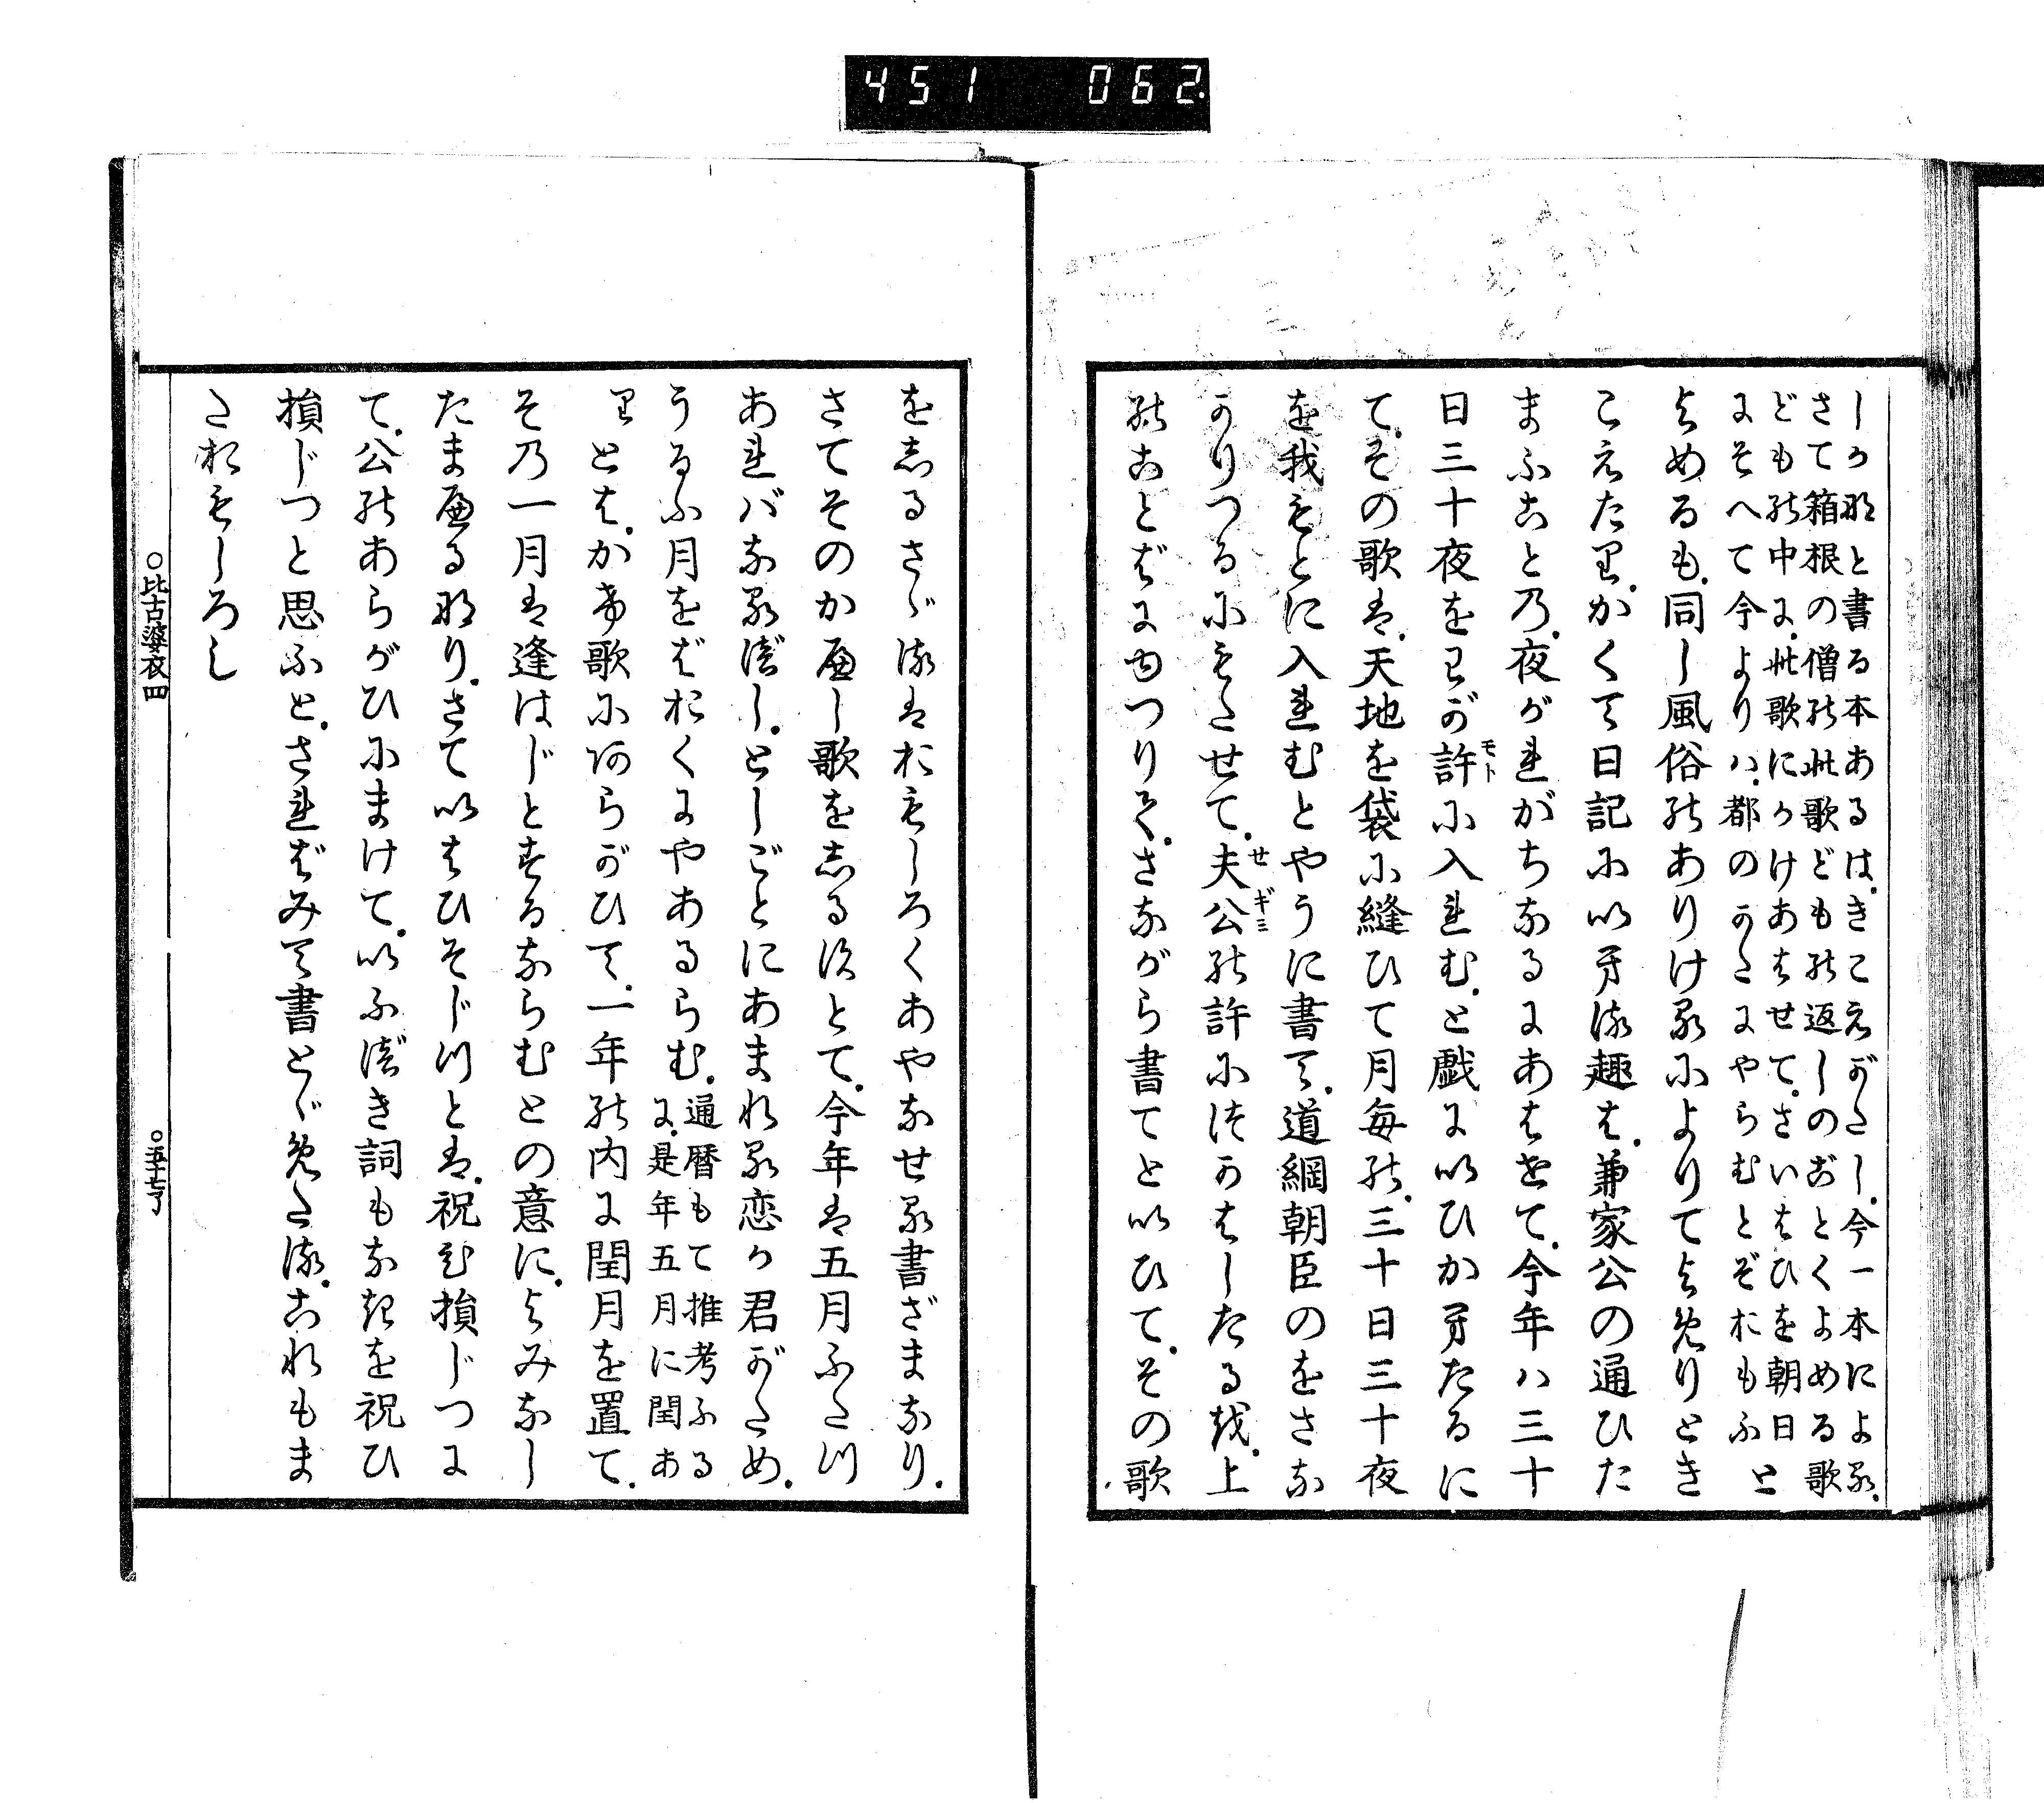 451 062
しかなと書る本あるは、きこえがたし、今一本による、
さて箱根の僧の此歌どもの返しのおとくよめる歌
どもの中に、此歌にかけあはせて、さいはひを朝日
にそへて今よりハ、都のかたにやらむとぞおもふと
よめるも、同し風俗のありけるによりてよめりとき
こえたり、かくて日記にいへる趣は、兼家公の通ひた
まふことの、夜がれがちなるにあはせて、今年ハ三十
日三十夜をわが許に入れむ、と戯にいひかへたるに
モト
て、その歌は、天地を袋に縫ひて月毎の、三十日三十夜
を我もとに入れむとやうに書て、道綱朝臣のをさな
かりつるにもたせて、夫公の許につかはしたる故、上
せギミ
のことばにゆつりて、さながら書てといひて、その歌
をしるさゞるはおもしろくあやなせる書ざまなり、
さてそのかへし歌をしるすとて、今年は五月ふたつ
あれバなるべし、としごとにあまれる恋か君がため、
うるふ月をばおくにやあるらむ、通暦もて推考ふる
に、是年五月に閏あ
りとは、かの歌にあらがひて、一年の内に閏月を置て、
その一月は逢はじとするならむとの意に、よみなし
たまへるなり、さていはひそじつとは、祝ひ損じつに
て、公のあらがひにまけて、いふべき詞もなきを祝ひ
損じつと思ふと、さればみて書とゞめたる、これもま
たおもしろし
○比古婆衣四
○五十七了